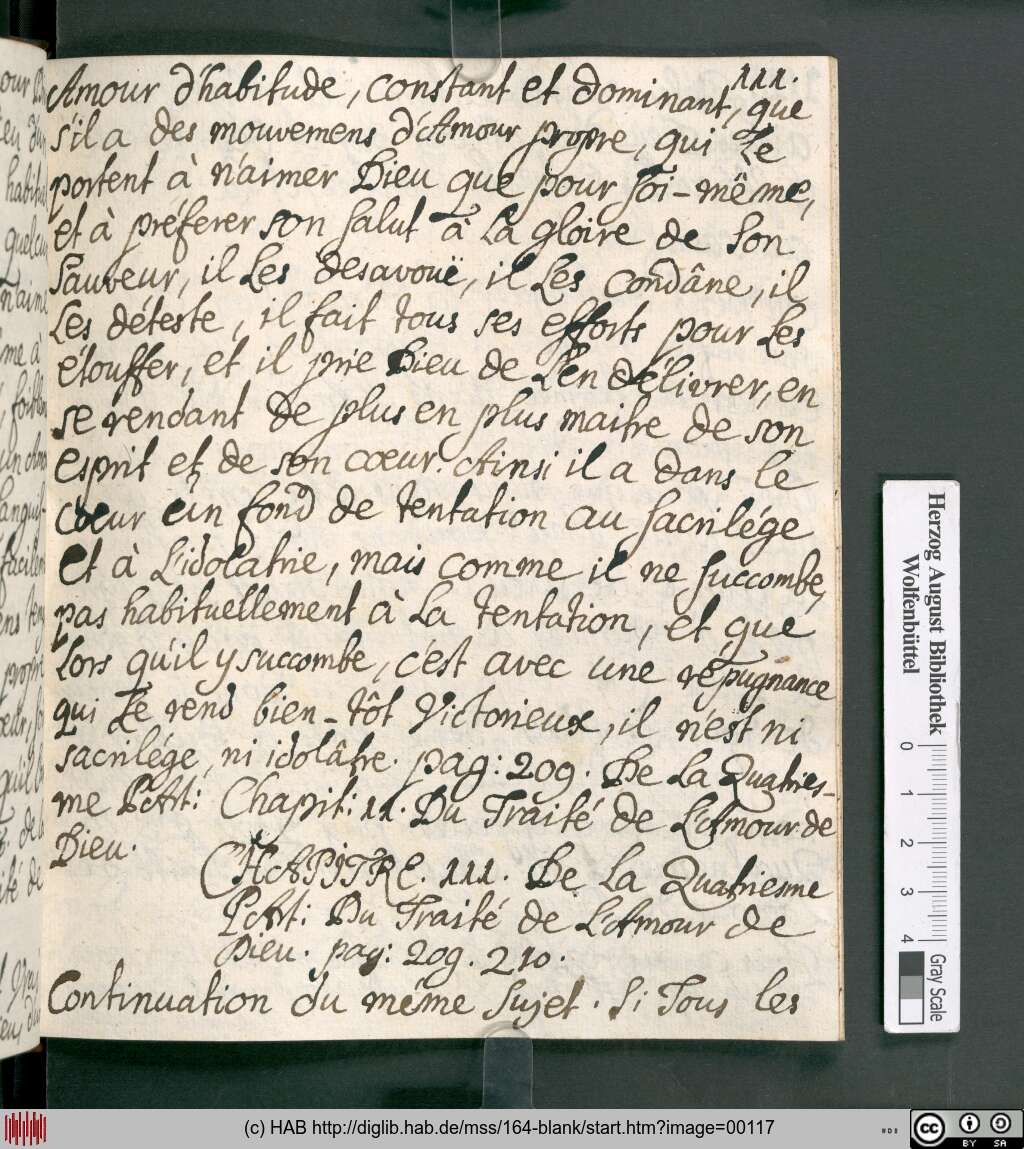 111.
Amour d'habitude, constant et dominant, que
s'il a des mouvemens d'Amour propre, qui Le
portent à n'aimer Dieu que pour soi-même,
et à préferer son salut à La gloire de son
Sauveur, il Les desavouë, il Les condâne, il
Les déteste, il fait tous ses efforts pour Les
étouffer, et il prie Dieu de L'en délivrer, en
se rendant de plus en plus maitre de son
esprit et de son coeur. Ainsi il a dans le
coeur un fond de tentation au sacrilége
et à L'idolatrie, mais comme il ne succombe,
pas habituellement à La tentation, et que
Lors qu'il y succombe, c'est avec une répugnance
qui Le rend bien-tôt Victorieux, il n'est ni
sacrilége, ni idolâtre. pag: 209. De La Quatries-
me PArt: Chapit: 11. Du Traité de L'Amour de
Dieu.
CHAPITRE. 111. De La Quatriesme
PArt: Du Traité de L'Amour de
Dieu. pag: 209. 210.
Continuation du même sujet. Si Tous les
Herzog August Bibliothek
Wolfenbüttel
0 1 2 3 4
Gray Scale
(c) HAB http://diglib.hab.de/mss/164-blank/start.htm?image=00117
cc BY SA